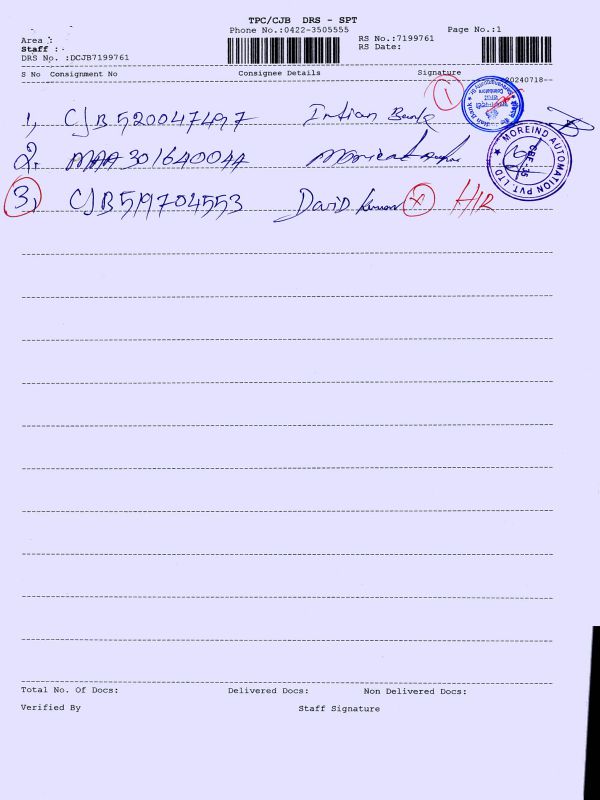 TPC/CJB DRS - SPT
Phone No.:0422-3505555
Page No.:1
Area :
RS No.:7199761
Staff :
RS Date:
DRS No. :DCJB7199761
S No Consignment No Consignee Details Signature
20240718--
1
1, CJB520047497 Indian Bank
2. MAA301640044
3, CJB519704553 David Kumar x H/R
MOREIND AUTOMATION PVT. LTD
CBE-35
Total No. Of Docs: Delivered Docs: Non Delivered Docs:
Verified By Staff Signature